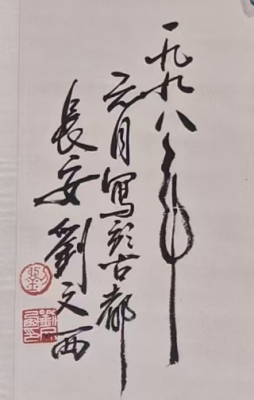 一九九八年
元月寫於古都
長安劉文西